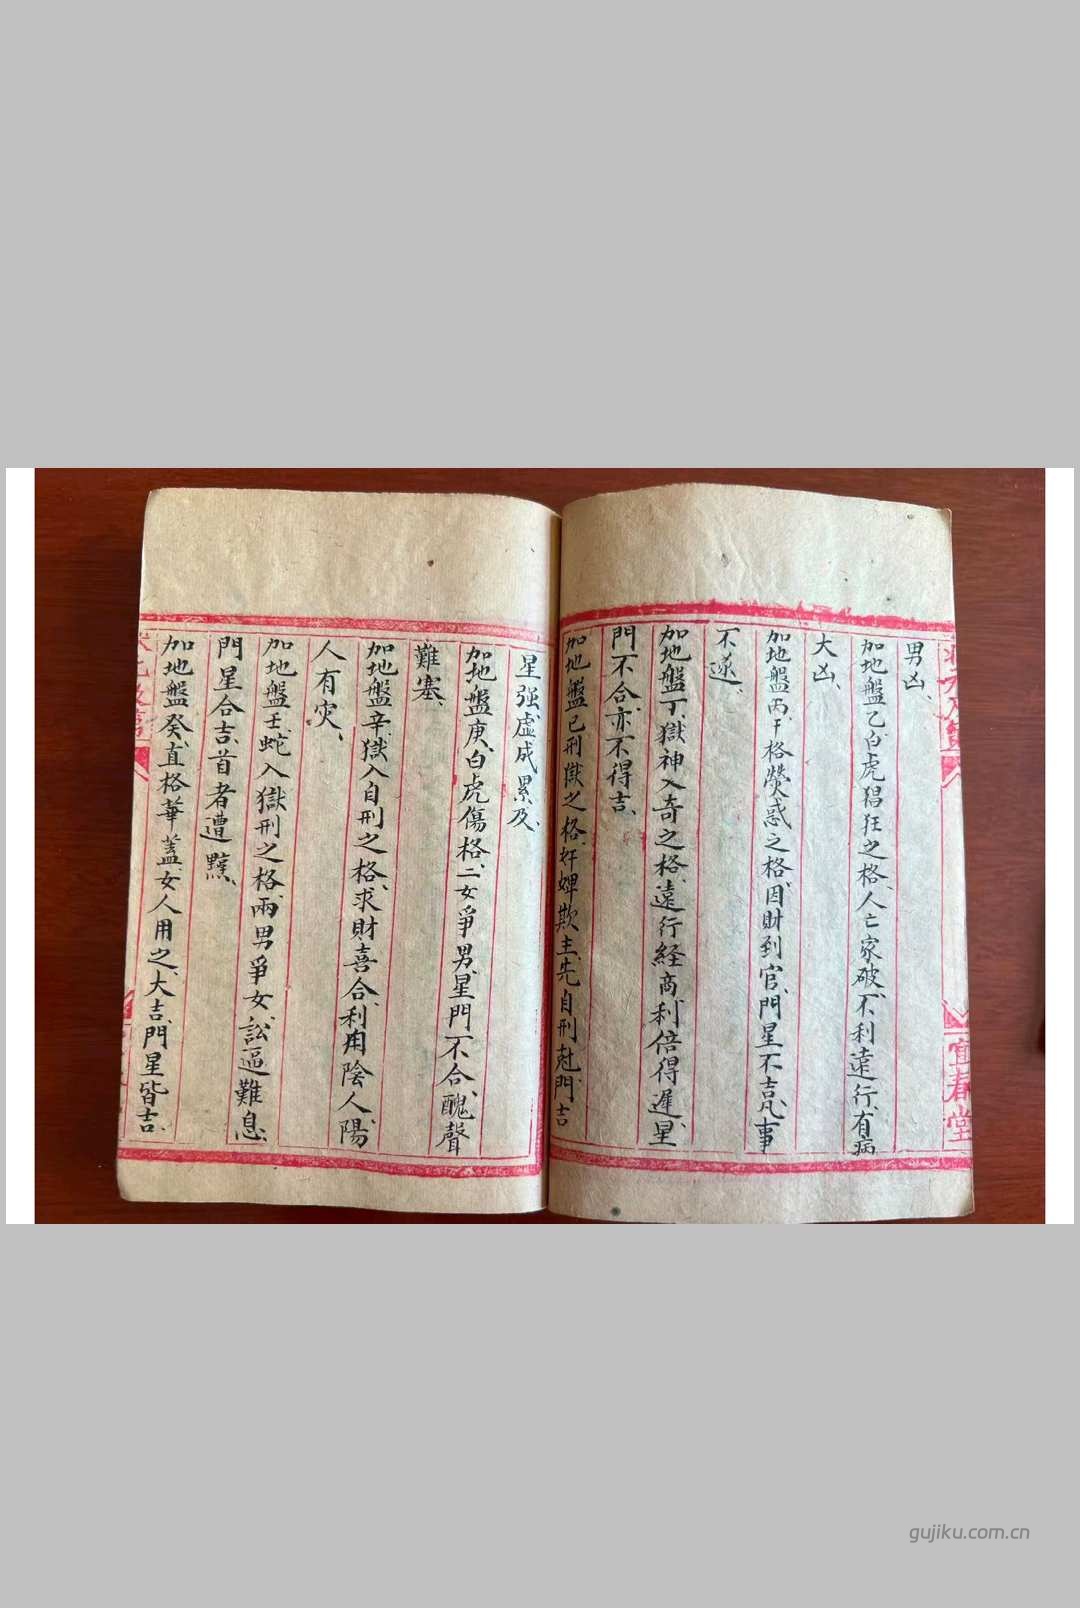 男凶、
加地盤乙、白虎猖狂之格、人亡家破、不利遠行、有病
大凶、
加地盤丙、干格熒惑之格、因財到官、門星不吉、凡事
不遂、
加地盤丁、獄神入奇之格、遠行經商、利倍得遲、星
門不合、亦不得吉、
加地盤己、刑獄之格、奸婢欺主、先自刑尅、門吉
星强、虛成累及、
加地盤庚、白虎傷格、二女爭男、星門不合、醜聲
難塞、
加地盤辛、獄入自刑之格、求財喜合、利用陰人、陽
人有灾、
加地盤壬、蛇入獄刑之格、兩男爭女、訟逼難息、
門星合吉、首者遭
加地盤癸、直格華蓋、女人用之、大吉、門星皆吉、
宜春堂
gujiku.com.cn